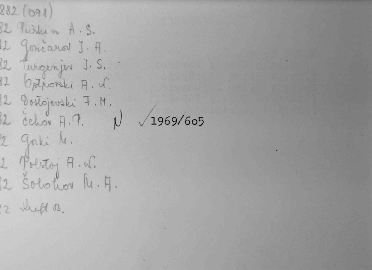 882 (091)
82 Puškin A. S.
82 Gončarov J. A.
82 Turgenjev J. S.
82 Ostrovski A. N.
82 Dostojevski F. M.
82 Čehov A. P. N ✓1969/605
82 Gorki M.
82 Tolstoj A. N.
82 Šolohov M. A.
82 Kreft B.